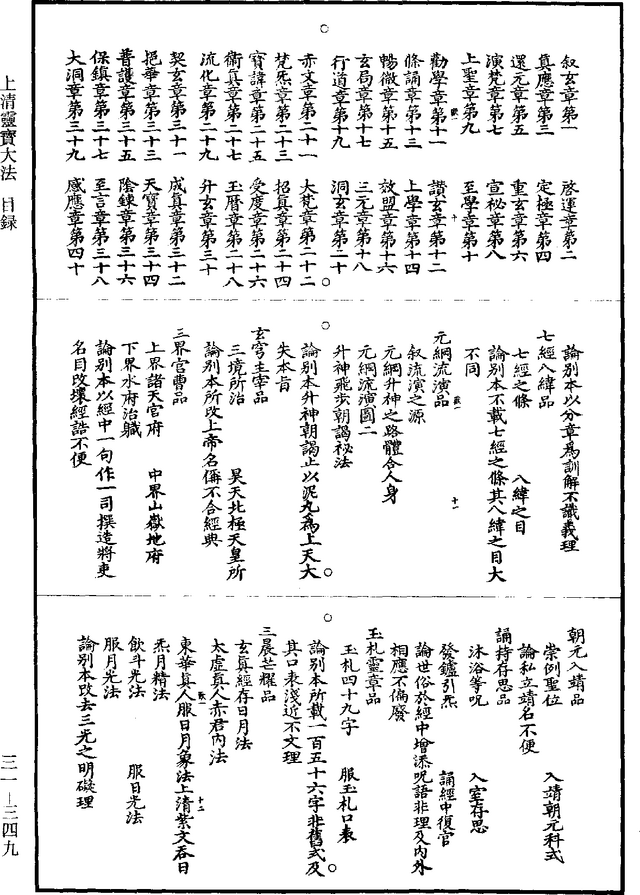 叙玄章第一　啓運章第二
真應章第三　定極章第四
還元章第五　重玄章第六
演梵章第七　宣祕章第八
上聖章第九　至學章第十
勸學章第十一　讚玄章第十二
條誦章第十三　上學章第十四
暢微章第十五　效盟章第十六
玄局章第十七　三元章第十八
行道章第十九　洞玄章第二十
赤文章第二十一　大梵章第二十二
梵炁章第二十三　招真章第二十四
寶諱章第二十五　受度章第二十六
衛真章第二十七　王曆章第二十八
流化章第二十九　升玄章第三十
契玄章第三十一　成真章第三十二
挹華章第三十三　天寶章第三十四
普護章第三十五　陰鍊章第三十六
保鎮章第三十七　至言章第三十八
大洞章第三十九　感應章第四十
論別本以分章為訓解不識義理
七經八緯品
七經之條　八緯之目
論別本不載七經之條其八緯之目大
不同
元綱流演品
叙流演之源
元綱升神之路體合人身
元綱流演圖二
升神飛步朝謁祕法
論別本升神朝謁止以泥丸為上天大
失本旨
玄穹主宰品
三境所治　昊天北極天皇所
論別本所改上帝名偁不合經典
三界官曹品
上界諸天官府　中界山嶽地府
下界水府治職
論別本以經中一句作一司撰造將吏
名目改壞經誥不便
朝元入靖品
崇例聖位　入靖朝元科式
論私立靖名不便
誦持存思品
沐浴等呪　入室存思
發鑪引炁　誦經中復官
論世俗於經中增添呪語非理及內外
相應不偏廢
玉札靈章品
玉札四十九字　服玉札口表
論別本所載一百五十六字非舊式及
其口表淺近不文理
三晨芒耀品
玄真經存日月法
太虛真人赤君內法
東華真人服日月象法上清紫文吞日
炁月精法
飲斗光法　服日光法
服月光法
論別本改去三光之明礙理
上清靈寶大法　目録
三一—三四九